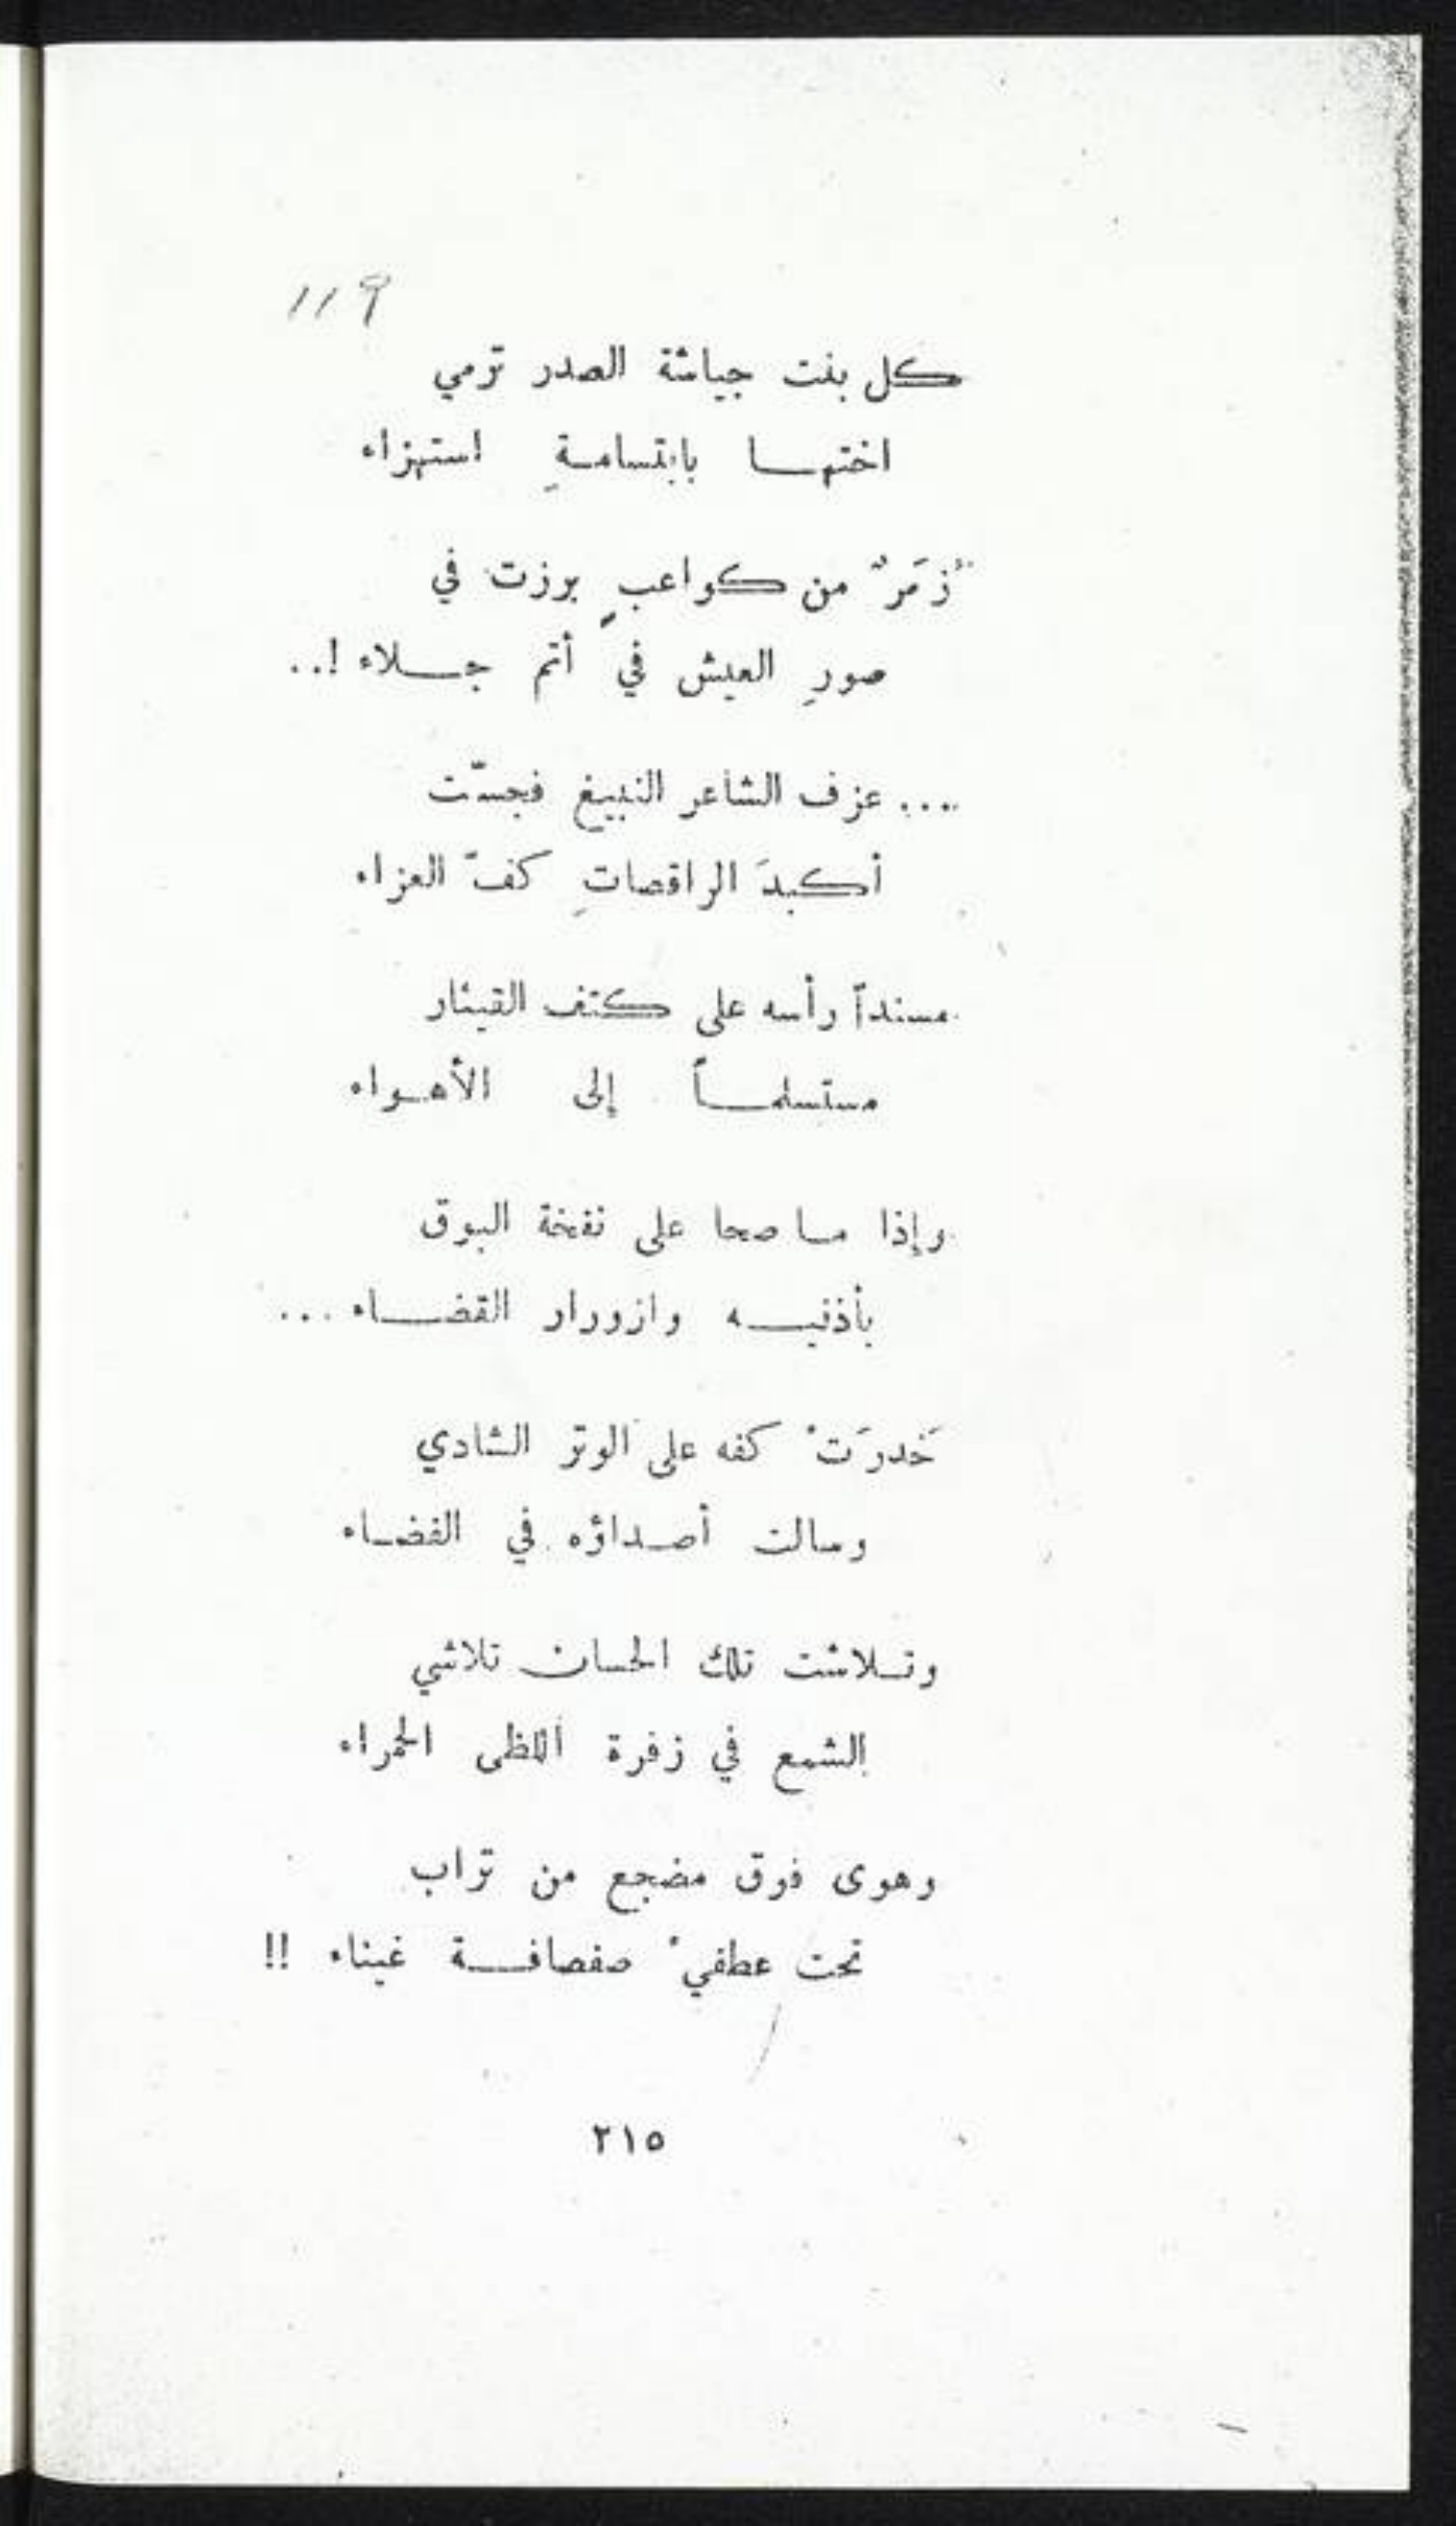 119
كل بنت جياشة الصدر ترمي
اختهــا بابتسامــةِ استهزاء
زُمَرٌ من كواعبٍ برزت في
صورِ العيش في أتم جــلاء !..
.... عزف الشاعر النبيغ فجسّت
أكبدَ الراقصاتِ كفّ العزاء
مسنداً رأسه على كتف القيثار
مستسلمــاً إلى الأهـواء
وإذا مـا صحا على نفخة البوق
بأذنيــه وازورار القضــاء ...
خَدرَتْ كفه على الوتر الشادي
وسالت أصـداؤه في الفضـاء
وتـلاشت تلك الحسان تلاشي
الشمع في زفرة اللظى الحمراء
وهوى فوق مضجع من تراب
تحت عطفيْ صفصافــة غيناء !!
٢١٥